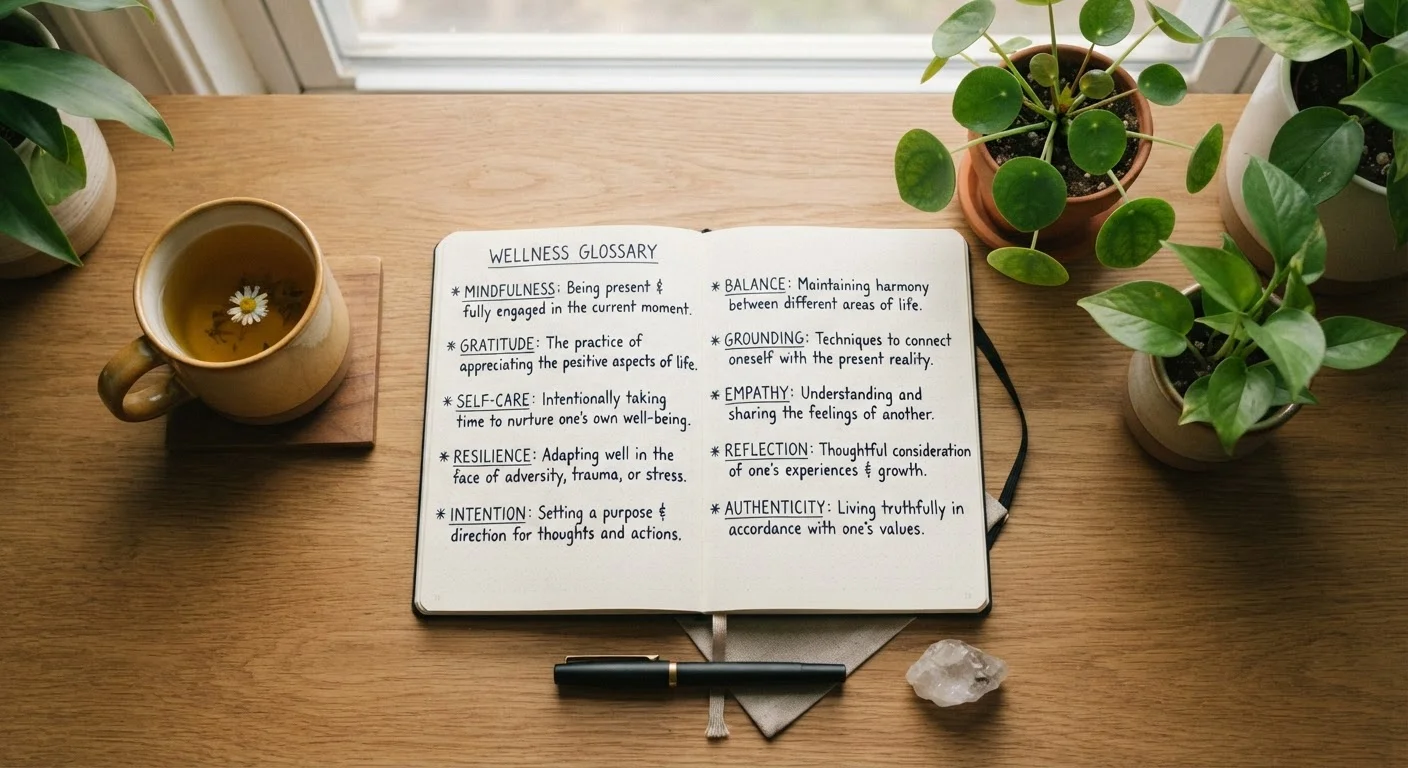 WELLNESS GLOSSARY
* MINDFULNESS: Being present &
fully engaged in the current moment.
* GRATITUDE: The practice of
appreciating the pesitive aspects of life.
* SELF-CARE: Intentionally taking
time to nurture one's own well-being.
* RESILIENCE: Adapting well in the
face of adversity, trauma, or stress.
* INTENTION: Setting a purpose &
direction for thoughts and actions.
* BALANCE: Maintaining harmony
between different areas of life.
* GROUNDING: Techniques to connect
oneself with the present reality.
* EMPATHY: Understanding and
sharing the feelings of another.
* REFLECTION: Thoughtful consideration
of one's experiences & growth.
* AUTHENTICITY: Living truthfully in
accordance with one's values.